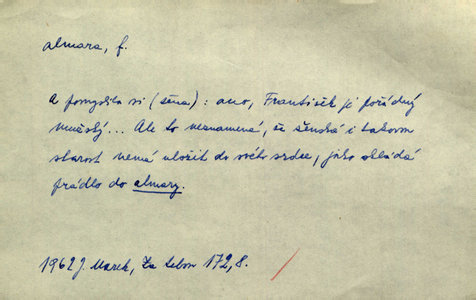 almara, f.
A pomyslila si (žena): ano, František je pořádný
mužský... Ale to neznamená, že ženská i takovou
starost nemá uložit do svého srdce, jako skládá
prádlo do almary.
1962 J. Marek, Za tebou 172,8.